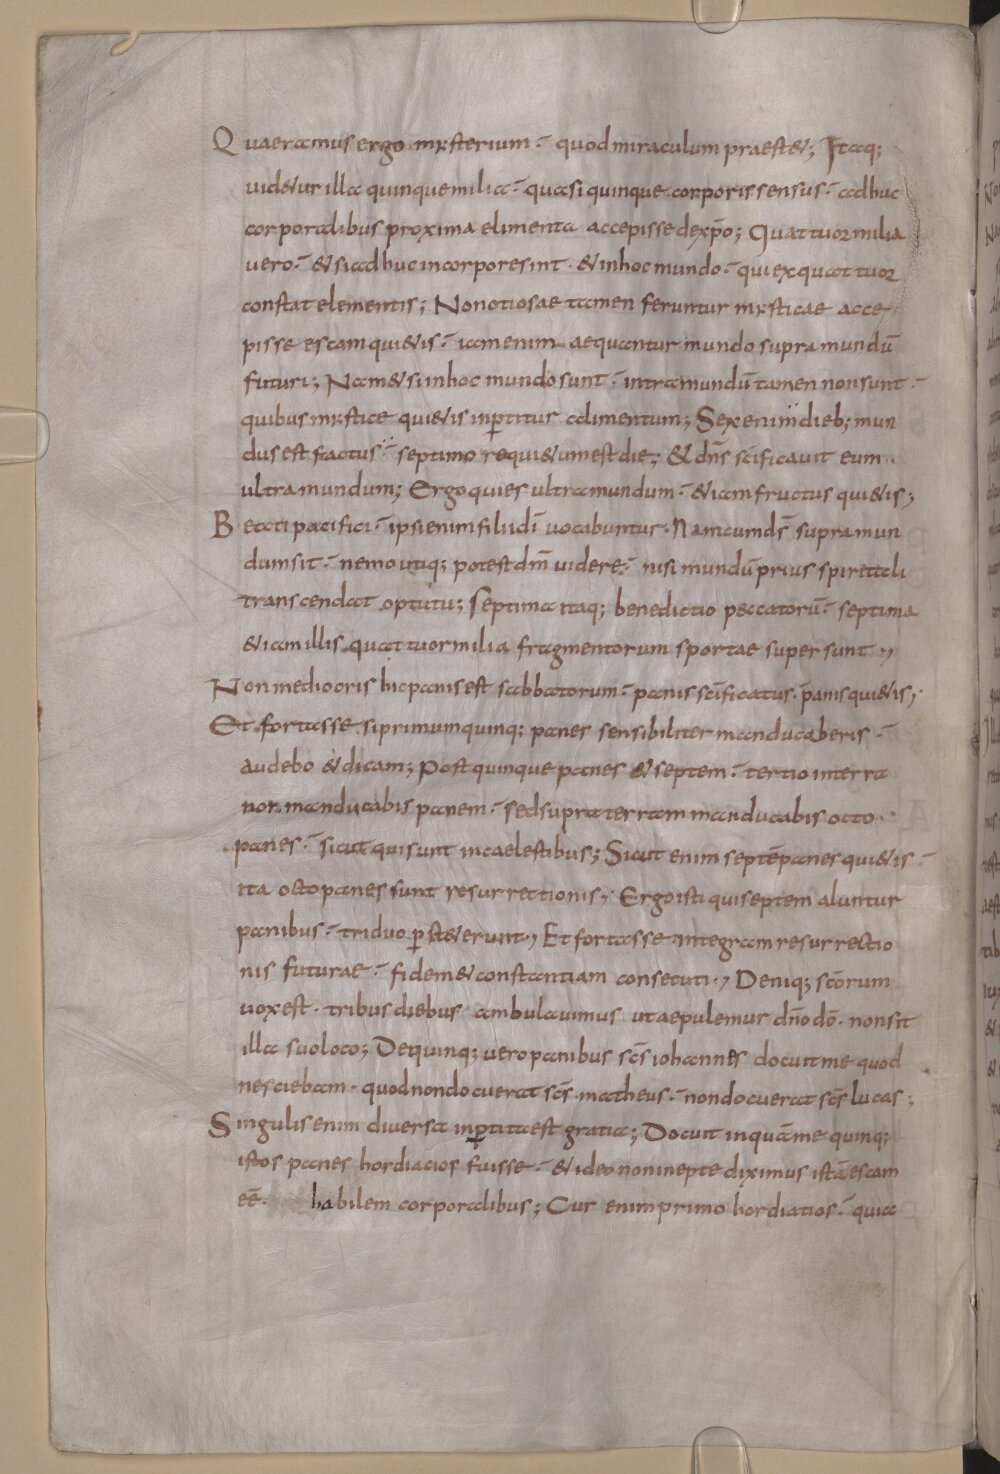 Quaeramus ergo mysterium · quod miraculum praest&; Itaq;
uid&ur illa quinque milia · quasi quinque corporis sensus · adhuc
corporalibus proxima elimenta accepisse de xp̄o; Quattuor milia
uero · & si adhuc in corpore sint · & in hoc mundo · qui ex quattuor
constat elementis; Non otiosae tamen feruntur mysticae acce
pisse escam qui&is · iam enim aequantur mundo supra mundū
futuri; Nam & si in hoc mundo sunt · intra mundū tamen non sunt ·
quibus mystice qui&is inp̄titus alimentum; Sex enim dieb; mun
dus est factus · septimo requi&um est die; & dn̄s sc̄ificauit eum
ultra mundum; Ergo quies ultra mundum · & iam fructus qui&is;
Beati pacifici · ipsi enim filii dī uocabuntur · Nam cum ds̄ supra mun
dum sit · nemo utiq; potest dm̄ uidere · nisi mundū prius spiritali
transcendat optutu; Septima itaq; benedictio peccatorū · septima
& iam illis quattuor milia fragmentorum sportae supersunt;
Non mediocris hic panis est sabbatorum · panis sc̄ificatus · panis qui&is;
Et fortasse si primum quinq; panes sensibiliter manducaberis ·
audebo & dicam; Post quinque panes & septem · tertio in terra
non manducabis panem · sed supra terram manducabis octo ·
panes · sicut qui sunt in caelestibus; Sicut enim septē panes qui&is ·
ita octo panes sunt resurrectionis; Ergo isti qui septem aluntur
panibus · triduo p̄st&erunt; Et fortasse integram resurrectio
nis futurae · fidem & constantiam consecuti; Deniq; sc̄orum
uox est · tribus diebus ambulauimus ut aepulemur dn̄o dō · non sit
illa suo loco; De quinq; uero panibus sc̄s iohannes docuit me quod
nesciebam · quod non docuerat sc̄s matheus · non docuerat sc̄s lucas;
Singulis enim diuersa inp̄tita est gratia; Docuit inquā me quinq;
istos panes hordiacios fuisse · & ideo non inepte diximus istā escam
eē · habilem corporalibus; Cur enim primo hordiatios · quia